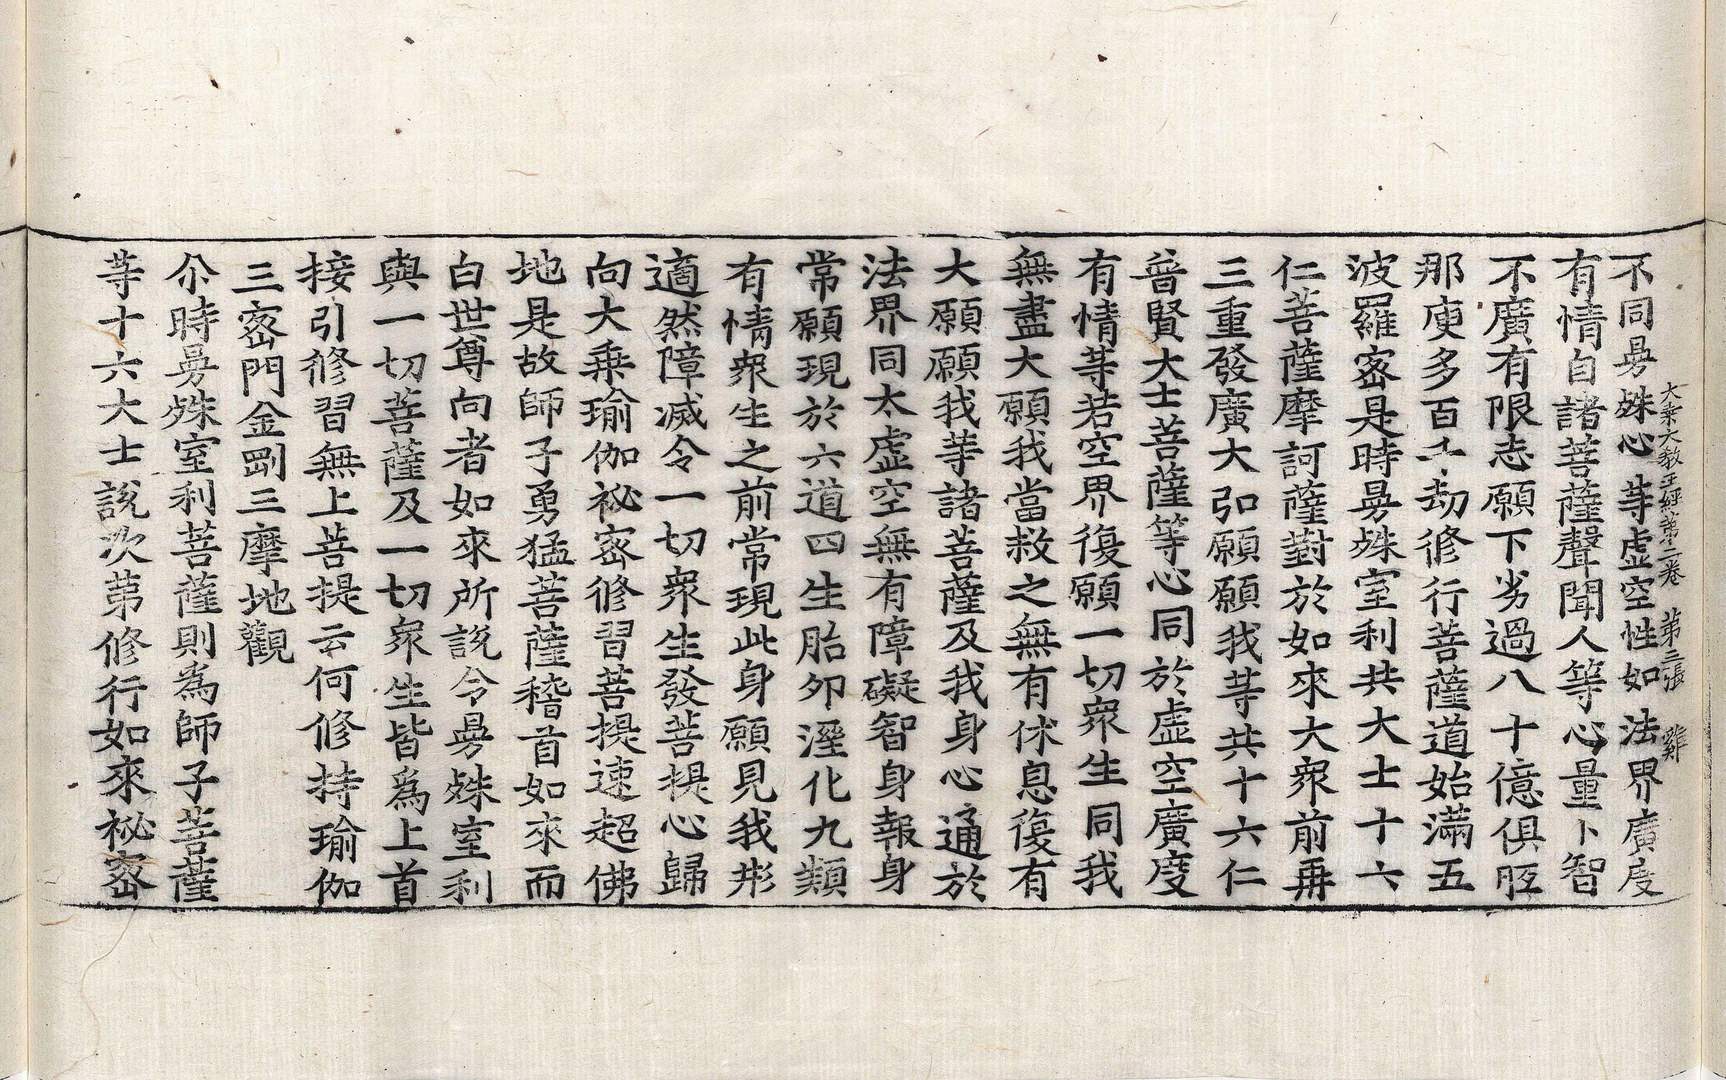 大乘大敎王經第二卷　第三張　雞
不同曼殊心等虛空性如法界廣度
有情自諸菩薩聲聞人等心量卜智
不廣有限志願下劣過八十億俱胝
那庾多百千劫修行菩薩道始滿五
波羅密是時曼殊室利共大士十六
仁菩薩摩訶薩對於如來大衆前再
三重發廣大弘願願我等共十六仁
普賢大士菩薩等心同於虛空廣度
有情等若空界復願一切衆生同我
無盡大願我當救之無有休息復有
大願願我等諸菩薩及我身心通於
法界同太虛空無有障礙智身報身
常願現於六道四生胎卵溼化九類
有情衆生之前常現此身願見我形
適然障滅令一切衆生發菩提心歸
向大乘瑜伽祕密修習菩提速超佛
地是故師子勇猛菩薩稽首如來而
白世尊向者如來所說令曼殊室利
與一切菩薩及一切衆生皆爲上首
接引修習無上菩提云何修持瑜伽
三密門金剛三摩地觀
尒時曼殊室利菩薩則爲師子菩薩
等十六大士說次第修行如來祕密